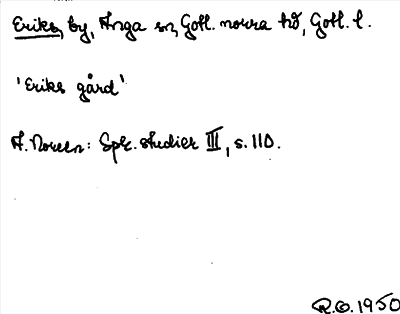 Eriks, by, Anga sn, Gotl. norra hd, Gotl. l.
'Eriks gård'
A. Noreen: Spr. studier III, s. 110.
R.O. 1950